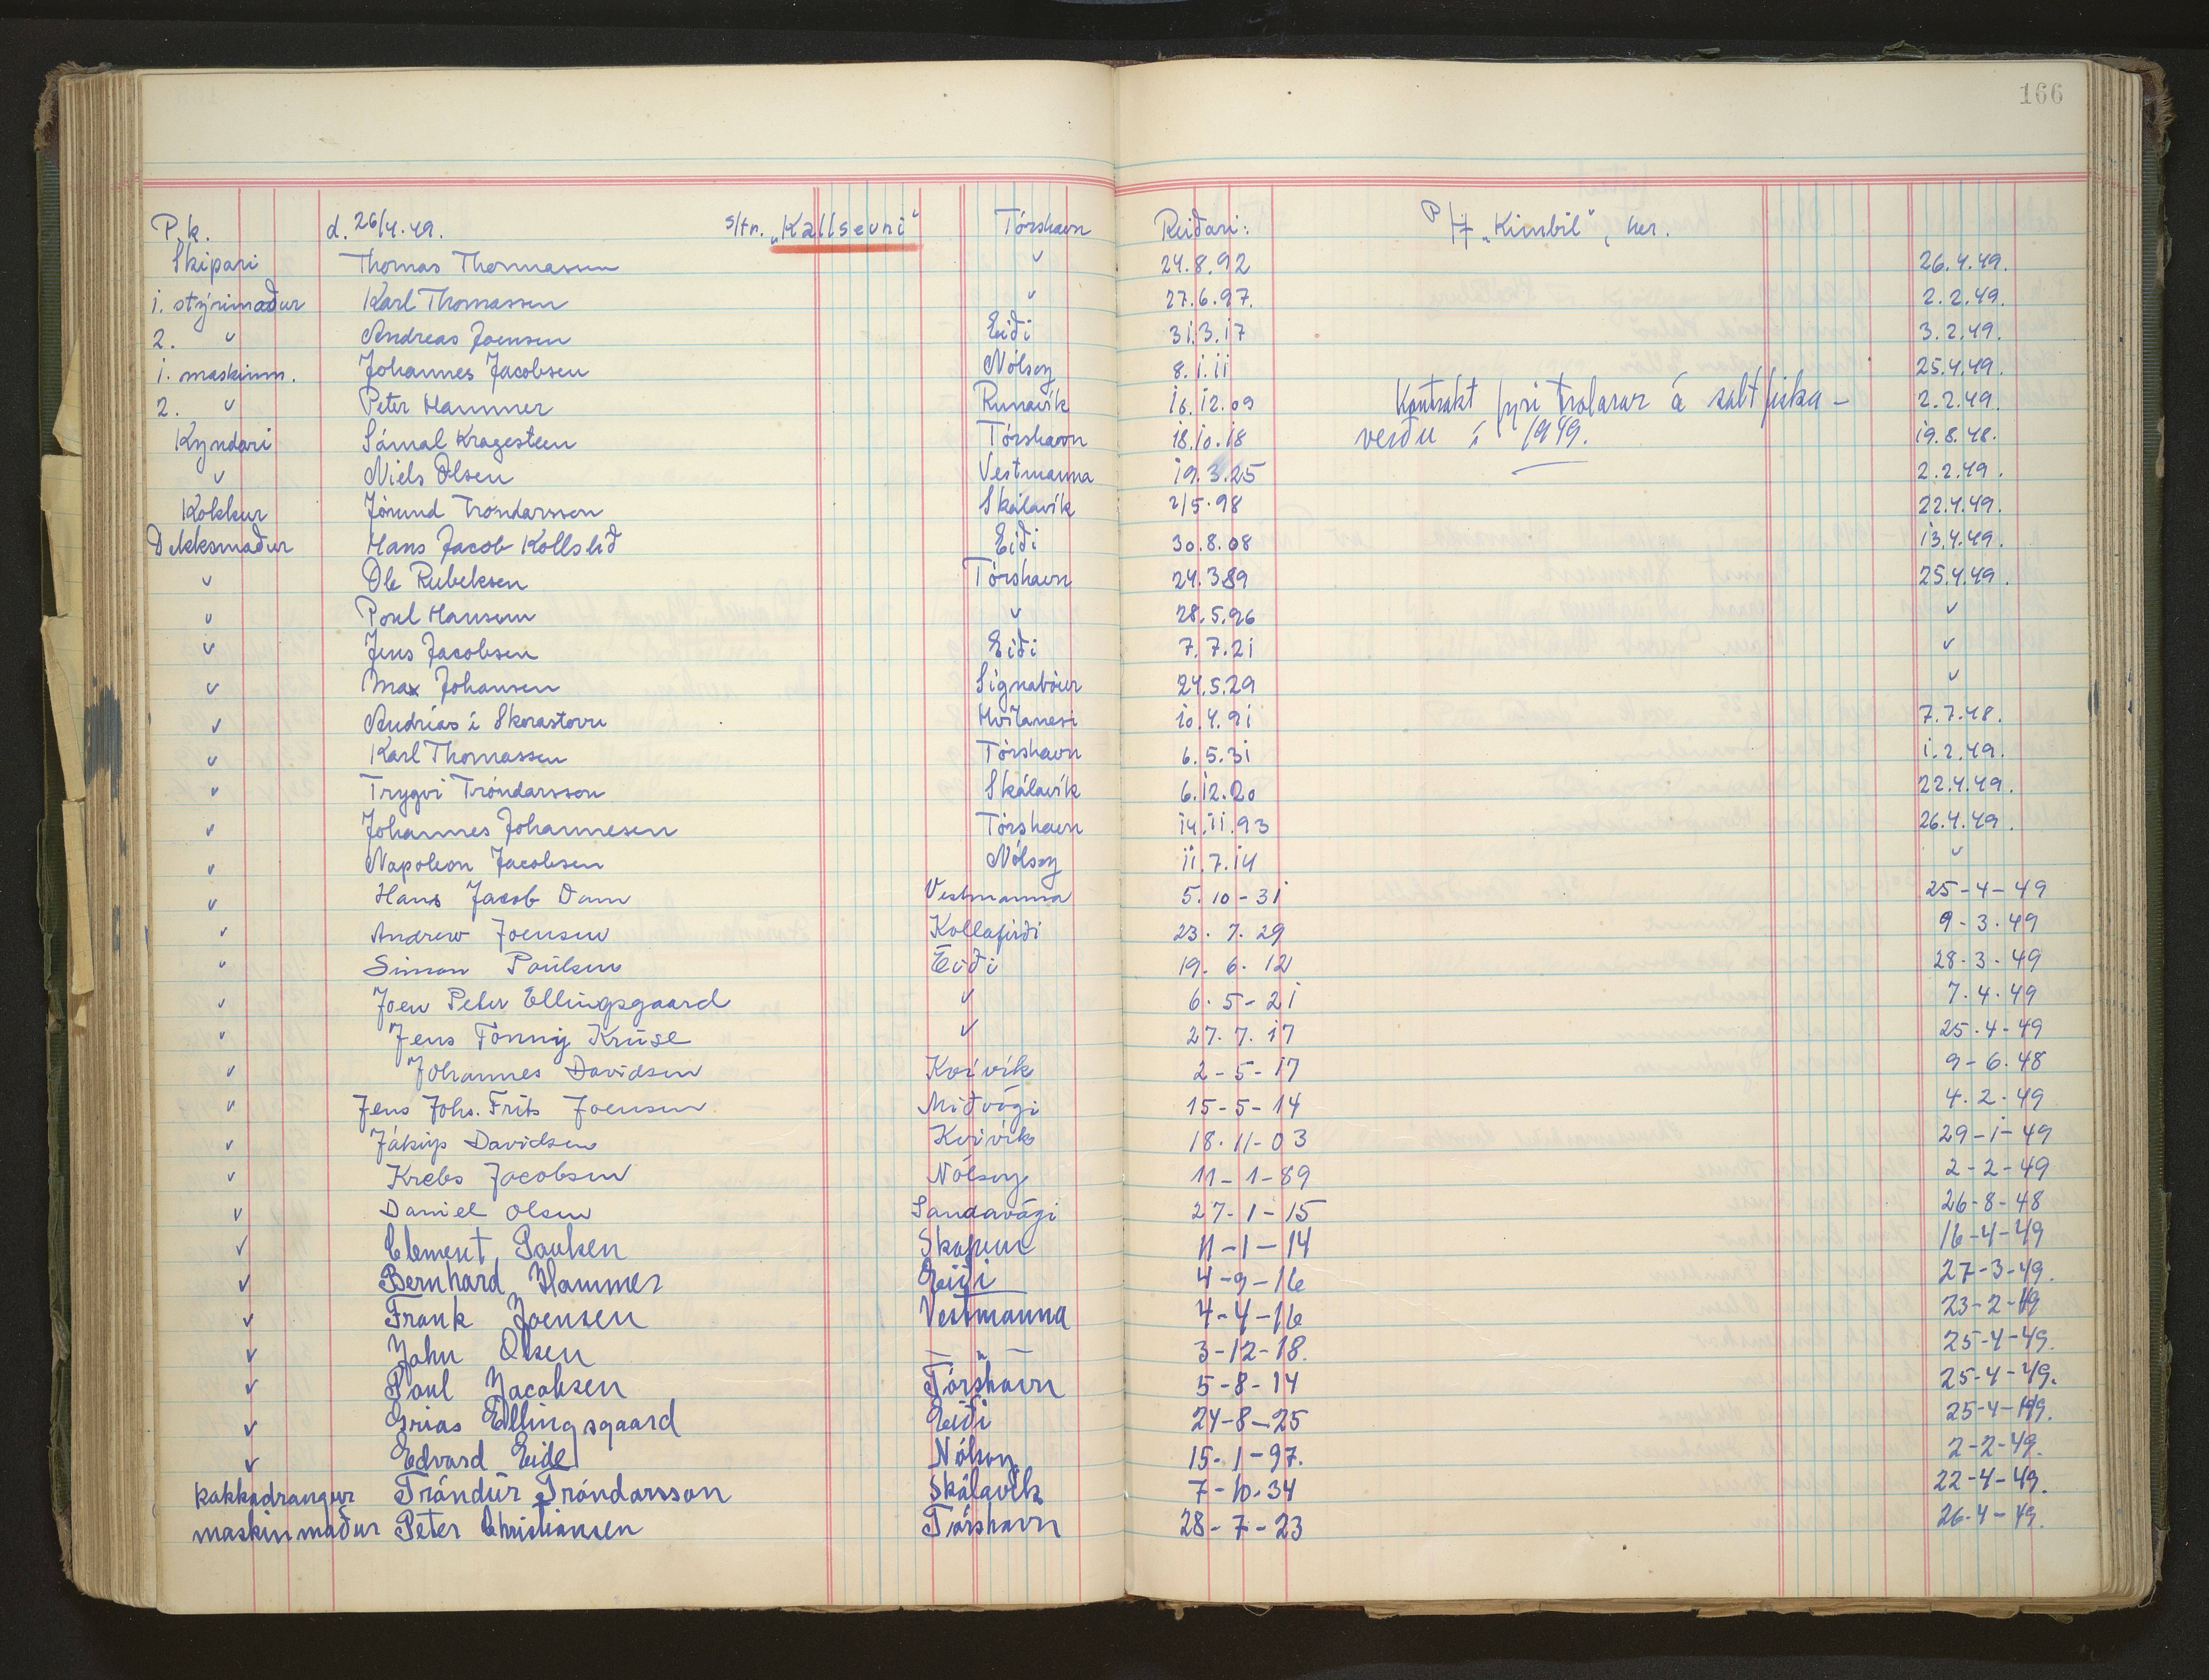 166
P.k. d. 26/4.49. s/tr. „Kallsevni“ Tórshavn Reiðari: P/F „Kimbil“, her.
Skipari Thomas Thomassen " 24.8.92 26.4.49.
1. stýrimaður Karl Thomassen " 27.6.97. 2.2.49.
2. " Andreas Joensen Eiði 31.3.17 3.2.49.
1. maskinm. Johannes Jacobsen Nólsoy 8.1.11 25.4.49.
2. " Peter Hammer Runavík 16.12.09 2.2.49.
Kontrakt fyri trolarar á saltfiska-
Kyndari Sámal Kragesteen Tórshavn 18.10.18 19.8.48.
veiðu í 1949.
" Niels Olsen Vestmanna 19.3.25 2.2.49.
Kokkur Jórund Tróndarsson Skálavík 2/5.98 22.4.49.
Dekksmaður Hans Jacob Kollslið Eiði 30.8.08 13.4.49.
" Ole Rubeksen Tórshavn 24.3.89 25.4.49.
" Poul Hansen " 28.5.96 "
" Jens Jacobsen Eiði 7.7.21 "
" Max Johansen Signabøur 24.5.29 "
" Andrias í Skorastovu Hvítanesi 10.4.91 7.7.48.
" Karl Thomassen Tórshavn 6.5.31 1.2.49.
" Trygvi Tróndarsson Skálavík 6.12.20 22.4.49.
" Johannes Johannesen Tórshavn 14.11.93 26.4.49.
" Napoleon Jacobsen Nólsoy 11.7.14 "
" Hans Jacob Dam Vestmanna 5.10-31 25-4-49
" Andrew Joensen Kollafirði 23. 7. 29 9-3.49
" Simon Poulsen Eiði 19. 6. 12 28-3-49
" Joen Peter Ellingsgaard " 6. 5-21 7.4.49
" Jens Fonny Kruse " 27. 7. 17 25.4-49
" Johannes Davidsen Kvívík 2-5-17 9-6.48
" Jens Johs. Frits Joensen Miðvági 15-5-14 4.2.49
" Jákup Davidsen Kvívík 18.11-03 29-1-49
" Krebs Jacobsen Nólsoy 11-1-89 2-2-49
" Daniel Olsen Sandavági 27-1-15 26-8-48
" Clement Poulsen Skopun 11-1-14 16-4-49
" Bernhard Hammer Eiði 4-9-16 27-3-49.
" Frank Joensen Vestmanna 4-4-16 23-2-49
" John Olsen — " — 3-12-18. 25-4-49.
" Poul Jacobsen Tórshavn 5-8-14 25-4-49.
" Grias Ellingsgaard Eiði 24-8-25 25-4-49.
" Edvard Eide Nólsoy 15-1-97. 2-2-49.
kokkadrangur Tróndur Tróndarsson Skálavík 7-10-34 22-4-49.
maskinmaður Peter Christiansen Tórshavn 28-7-23 26-4-49.